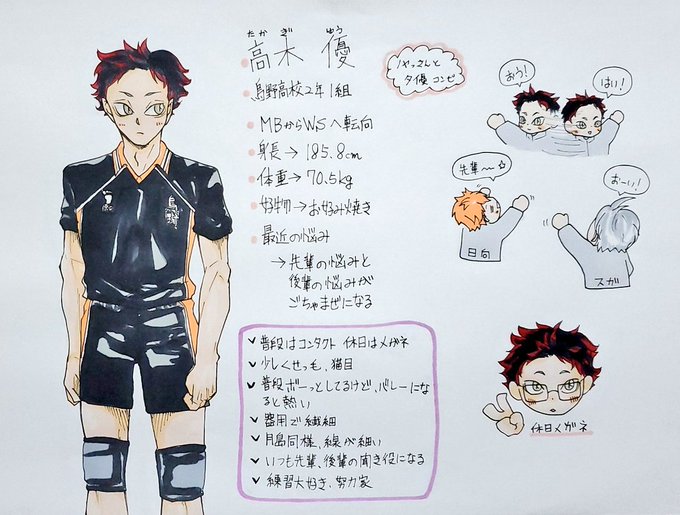 たか ぎ ゆう
高木 優
烏野高校2年1組
MBからWSへ転向
身長→185.8cm
体重→70.5kg
好物→お好み焼き
最近の悩み
→先輩の悩みと
後輩の悩みが
ごちゃまぜになる
ノヤっさんと
夕優コンビ
おう!
はい!
先輩〜☆
おーい!
日向
スガ
普段はコンタクト 休日はメガネ
少しくせっ毛、猫目
普段ボーっとしてるけど、バレーにな
ると熱い
器用で繊細
月島同様、線が細い
いつも先輩、後輩の聞き役になる
練習大好き、努力家
休日メガネ